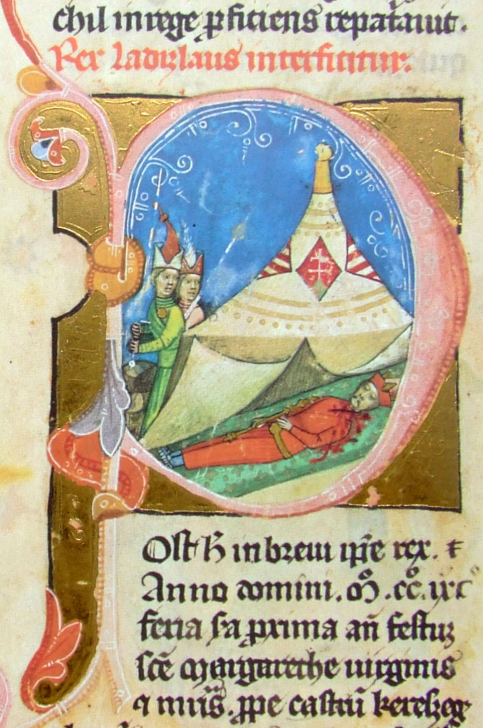 chil in rege ꝑficiens repataiut.
Rex ladizlaus interficitur.
Ost h̄ in breui ip̄e rex. ⁊
Anno domini. m̊. cc̊. lxc̊
feria s̄a proxima an̄ festuꝫ
sc̄e margarethe uirginis
⁊ nuis̄. ꝓpe castrū kereszeg